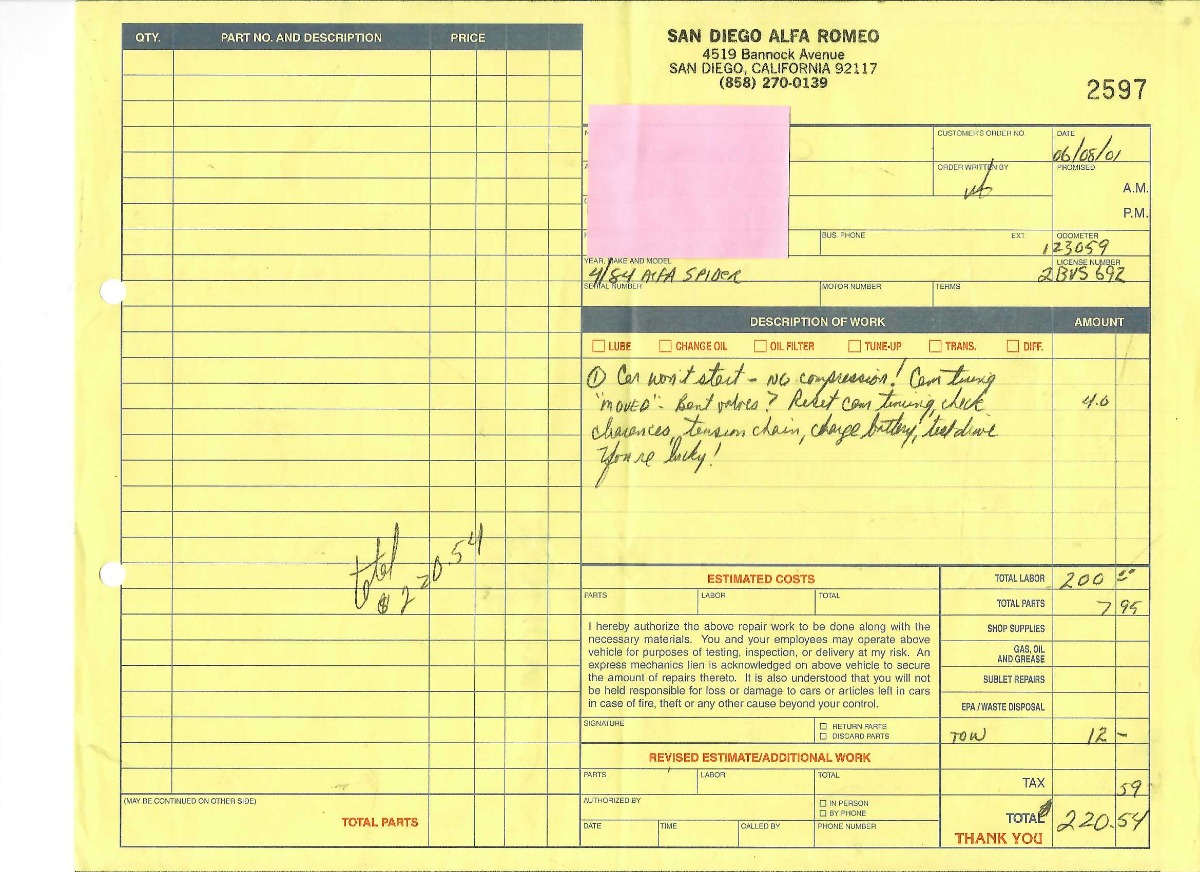 QTY. PART NO. AND DESCRIPTION PRICE
SAN DIEGO ALFA ROMEO
4519 Bannock Avenue
SAN DIEGO, CALIFORNIA 92117
(858) 270-0139
2597
CUSTOMER'S ORDER NO. DATE
06/08/01
ORDER WRITTEN BY PROMISED
A.M.
P.M.
BUS. PHONE EXT. ODOMETER
123059
YEAR, MAKE AND MODEL LICENSE NUMBER
4/84 ALFA SPIDER 2BVS 692
SERIAL NUMBER MOTOR NUMBER TERMS
DESCRIPTION OF WORK AMOUNT
LUBE CHANGE OIL OIL FILTER TUNE-UP TRANS. DIFF.
① Car won't start - NO compression! Cam timing
"MOVED" - Bent valves? Reset cam timing, check 4.0
clearences, tension chain, charge battery, test drive
You're lucky!
total
$ 220.54
ESTIMATED COSTS
PARTS LABOR TOTAL
I hereby authorize the above repair work to be done along with the
necessary materials. You and your employees may operate above
vehicle for purposes of testing, inspection, or delivery at my risk. An
express mechanics lien is acknowledged on above vehicle to secure
the amount of repairs thereto. It is also understood that you will not
be held responsible for loss or damage to cars or articles left in cars
in case of fire, theft or any other cause beyond your control.
SIGNATURE
RETURN PARTS
DISCARD PARTS
REVISED ESTIMATE/ADDITIONAL WORK
PARTS LABOR TOTAL
AUTHORIZED BY
IN PERSON
BY PHONE
DATE TIME CALLED BY PHONE NUMBER
TOTAL LABOR 200 00
TOTAL PARTS 7 95
SHOP SUPPLIES
GAS, OIL
AND GREASE
SUBLET REPAIRS
EPA / WASTE DISPOSAL
TOW 12 -
TAX 59
TOTAL $ 220.54
THANK YOU
(MAY BE CONTINUED ON OTHER SIDE)
TOTAL PARTS